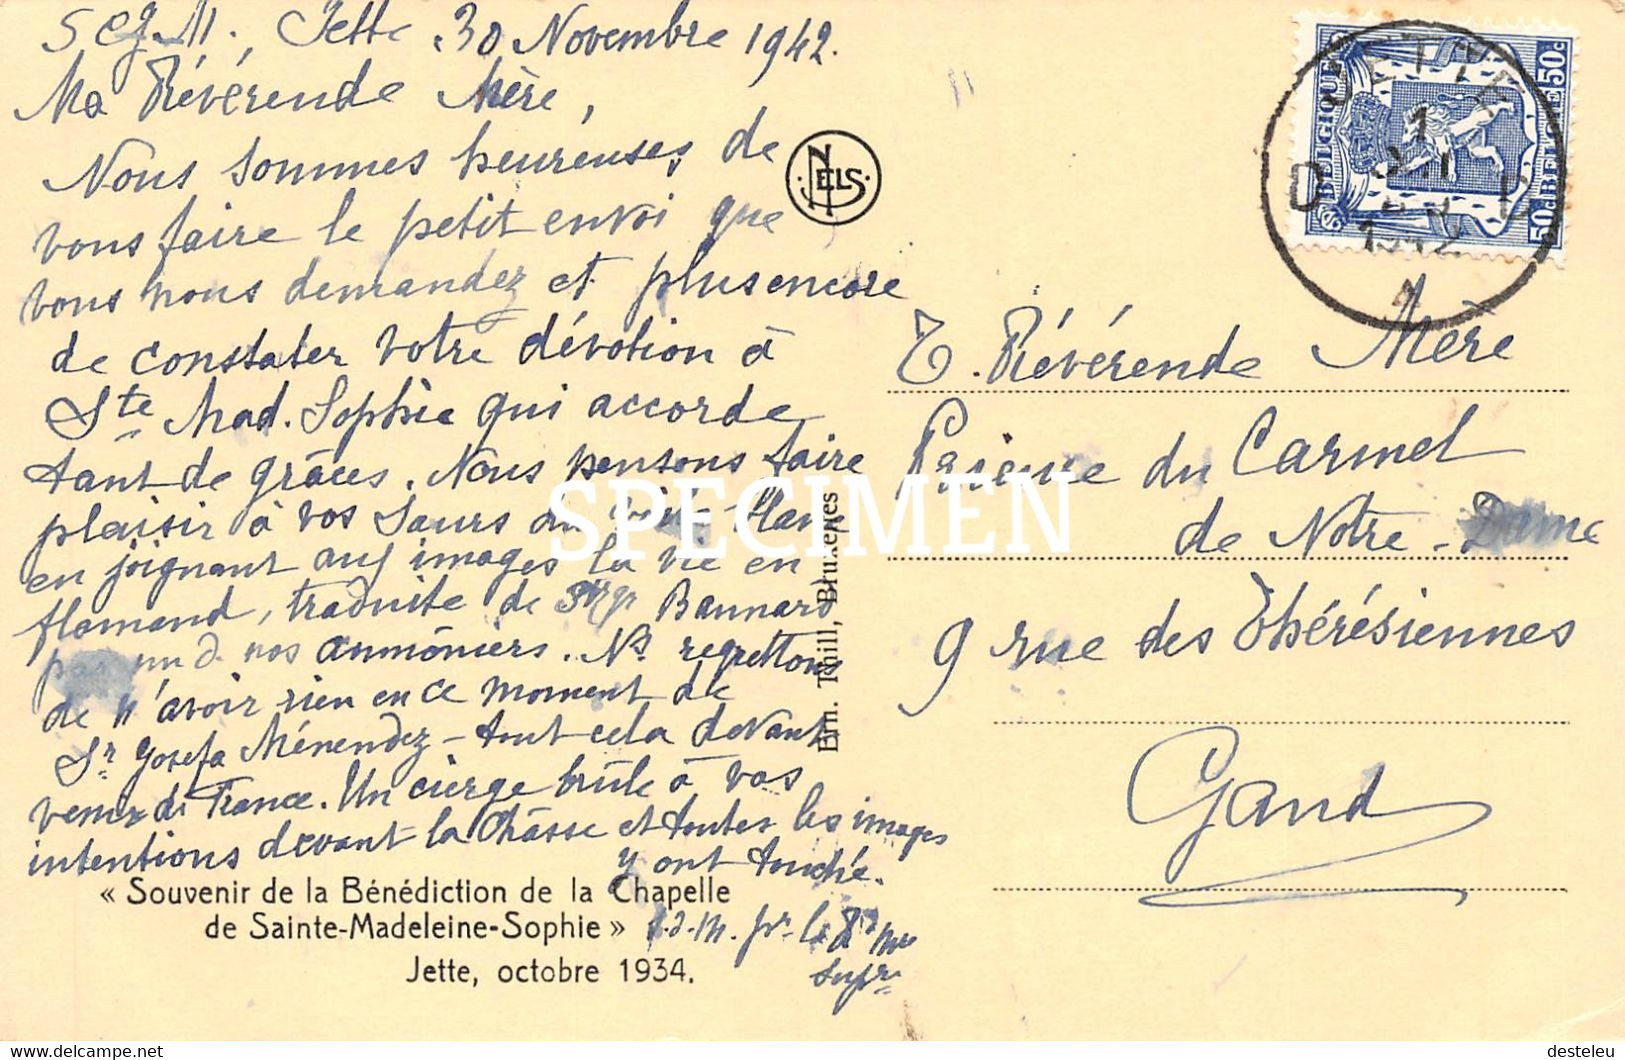 SCJM. Jette, 30 Novembre 1942.
Ma Révérende Mère,
Nous sommes heureuses de
vous faire le petit envoi que
vous nous demandez et plus encore
de constater votre dévotion à
Ste Mad. Sophie qui accorde
tant de grâces. Nous pensons faire
plaisir à vos Sœurs du
en joignant aux images la vie en
flamand, traduite de Mgr Baunard
par un d nos aumôniers. Ns regrettons
de n'avoir rien en ce moment de
Sr Josefa Ménendez - tout cela devant
venir de France. Un cierge brûle à vos
intentions devant la Châsse et toutes les images
y ont touché.
pr la Rde Mre
Supre
« Souvenir de la Bénédiction de la Chapelle
de Sainte-Madeleine-Sophie »
Jette, octobre 1934.
NELS
Ern. Thill, Bruxelles
BELGIQUE 50c
BELGIE 50c
JETTE
1
XII
1942
D D
T. Révérende Mère
Prieure du Carmel
de Notre-Dame
9 rue des Thérésiennes
Gand
SPECIMEN
www.delcampe.net
desteleu